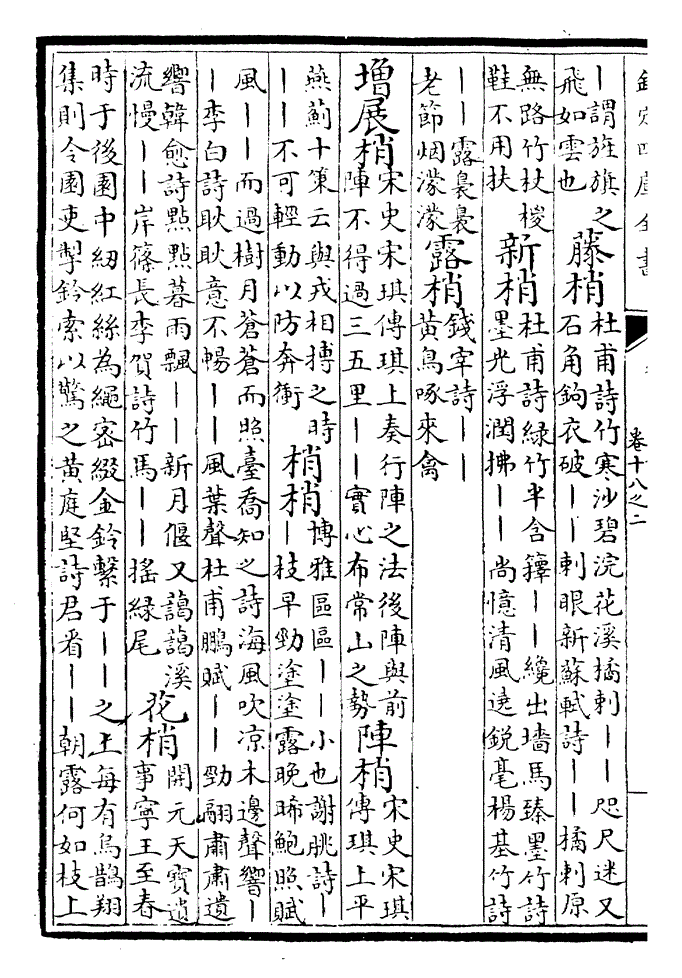 欽定四庫全書
卷十八之二
｜謂旌旗之
飛如雲也
藤梢
杜甫詩竹寒沙碧浣花溪橘刺｜｜咫尺迷又
石角鉤衣破｜｜刺眼新蘇軾詩｜｜橘刺原
無路竹杖椶
鞋不用扶
新梢
杜甫詩綠竹半含籜｜｜纔出墻馬臻墨竹詩
墨光浮潤拂｜｜尚憶清風遶銳毫楊基竹詩
｜｜露裊裊
老節烟濛濛
露梢
錢宰詩｜｜
黃鳥啄來禽
增展梢
宋史宋琪傳琪上奏行陣之法後陣與前
陣不得過三五里｜｜實心布常山之勢
陣梢
宋史宋琪
傳琪上平
燕薊十策云與戎相搏之時
｜｜不可輕動以防奔衝
梢梢
博雅區區｜｜小也謝朓詩｜
｜枝早勁塗塗露晚晞鮑照賦
風｜｜而過樹月蒼蒼而照臺喬知之詩海風吹凉木邊聲響｜
｜李白詩耿耿意不暢｜｜風葉聲杜甫鵬賦｜｜勁翮肅肅遺
響韓愈詩點點暮雨飄｜｜新月偃又藹藹溪
流慢｜｜岸篠長李賀詩竹馬｜｜搖綠尾
花梢
開元天寶遺
事寧王至春
時于後園中紉紅絲為繩密綴金鈴繫于｜｜之上每有鳥鵲翔
集則令園吏掣鈴索以驚之黃庭堅詩君看｜｜朝露何如枝上